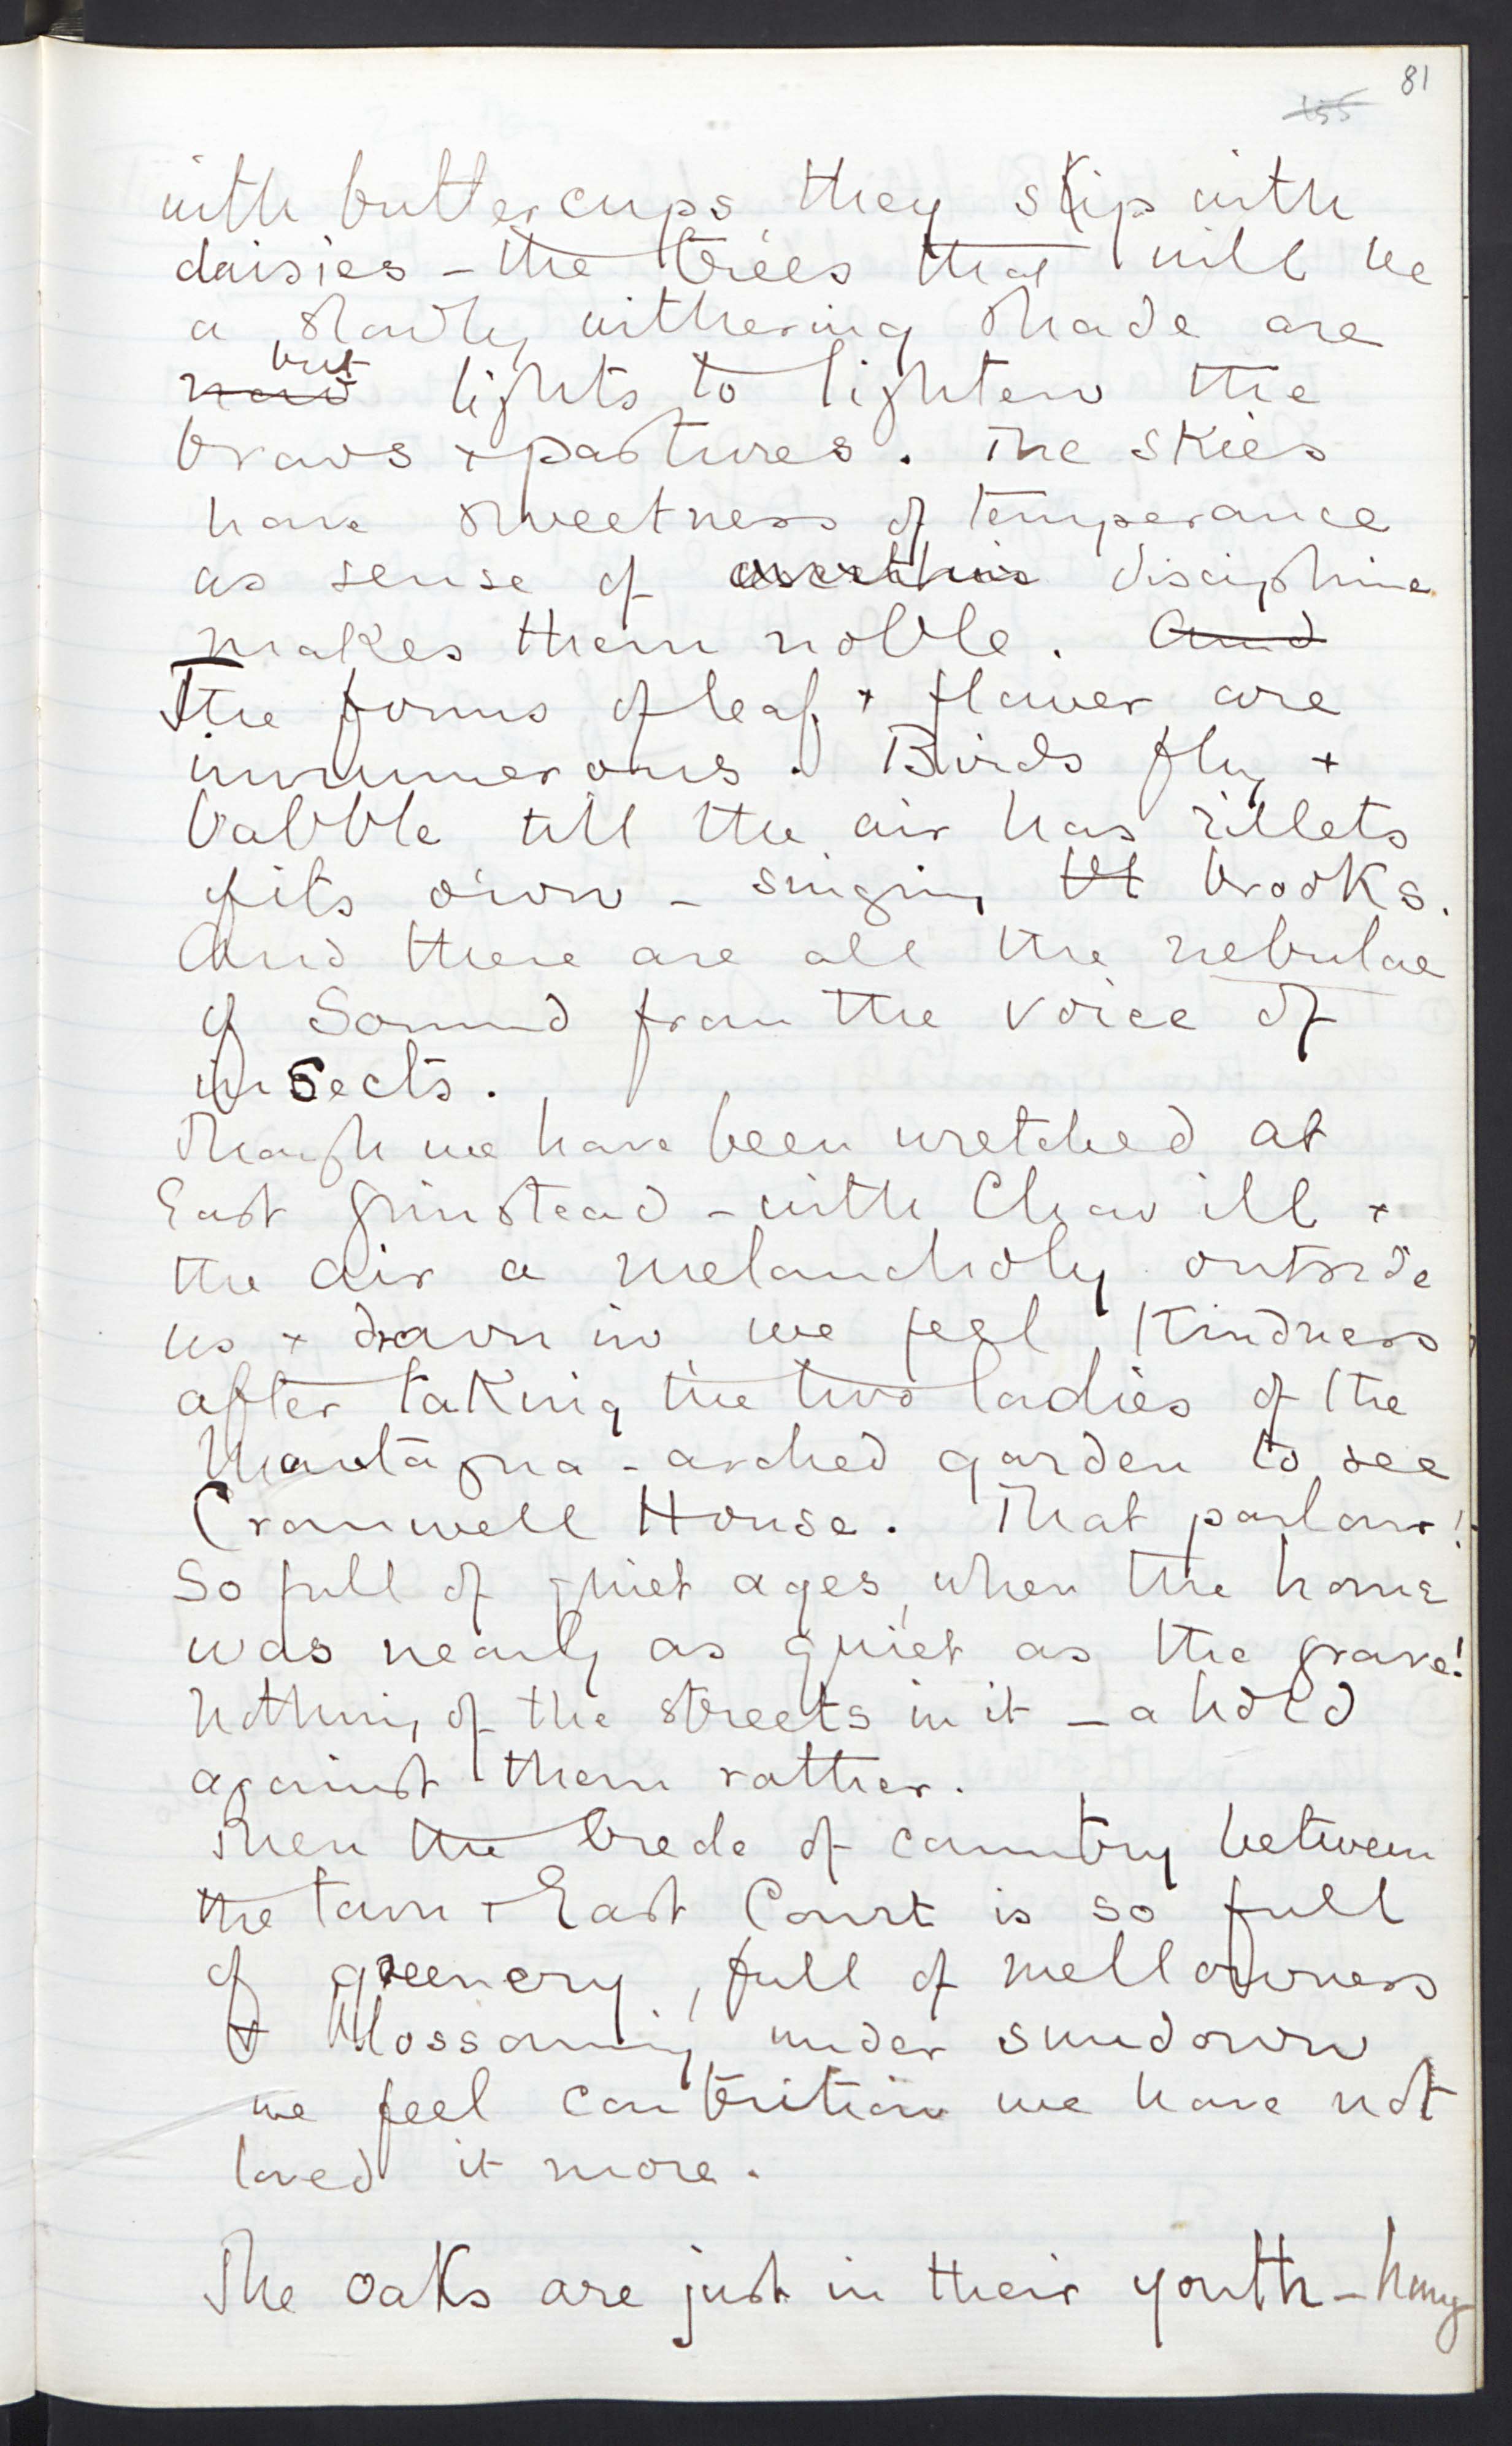 81
155
with buttercups they skip with
daisies – the trees that will be
a slowly withering shade are
but
now lights to lighten the
brows + pastures. The skies
have sweetness of temperance
as sense of discipline
makes them noble. And
The forms of leaf + flower are
innumerous. Birds fly +
babble till the air has rillets
of its own – singing brooks.
And there are all the nebulae
of Sound from the voice of
insects.
Though we have been wretched at
East Grinstead – with Chow ill +
the air a melancholy outside
us + drawn in we feel kindness
after taking the two ladies of the
Mantegna-arched garden to see
Cromwell House. That parlour!
So full of quiet ages, when the home
was nearly as quiet as the grave!
Nothing of the streets in it – a hold
against them rather.
Then the brede of country between
the town + East Court is so full
of greenery, full of mellowness
+ blossoming under sundown
we feel contrition we have not
loved it more.
The oaks are just in their youth – hung